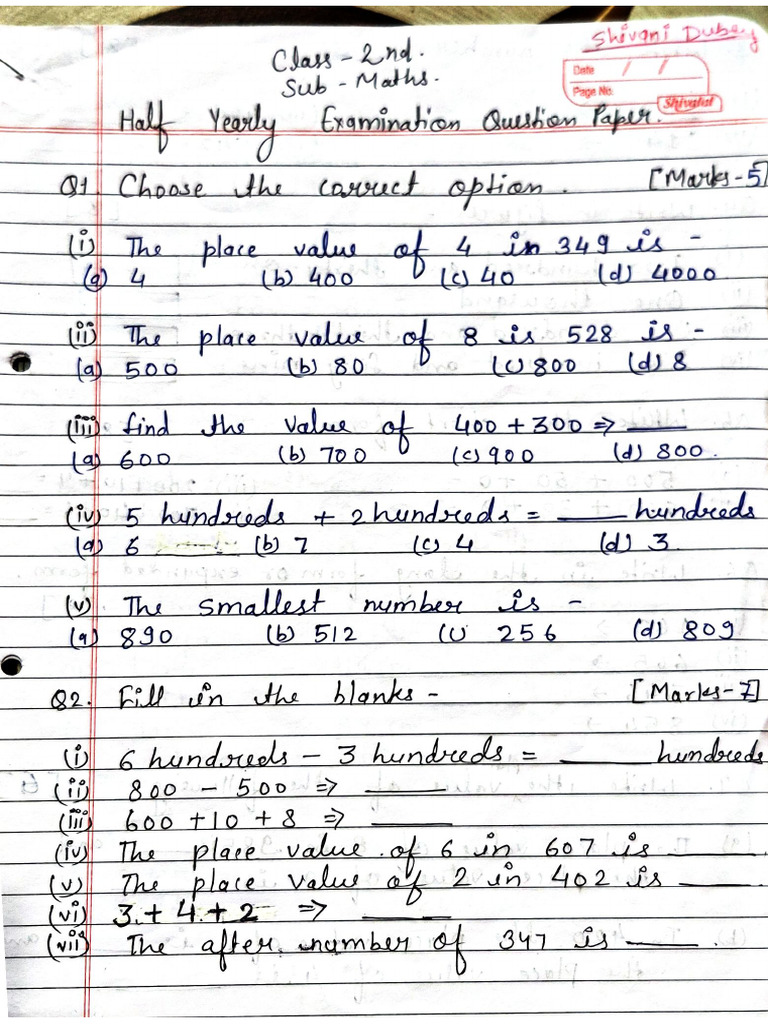 Shivani Dubey
Class - 2nd.
Sub - Maths.
Date / /
Page No.
Shivalal
Half Yearly Examination Question Paper.
Q1. Choose the correct option. [Marks-5]
(i) The place value of 4 in 349 is -
(a) 4 (b) 400 (c) 40 (d) 4000
(ii) The place value of 8 is 528 is -
(a) 500 (b) 80 (c) 800 (d) 8
(iii) find the value of 400 + 300 ⇒ ____
(a) 600 (b) 700 (c) 900 (d) 800.
(iv) 5 hundreds + 2 hundreds = ____ hundreds
(a) 6 (b) 7 (c) 4 (d) 3
(v) The smallest number is -
(a) 890 (b) 512 (c) 256 (d) 809
Q2. Fill in the blanks - [Marks-7]
(i) 6 hundreds - 3 hundreds = ____ hundreds
(ii) 800 - 500 ⇒ ____
(iii) 600 + 10 + 8 ⇒ ____
(iv) The place value of 6 in 607 is ____
(v) The place value of 2 in 402 is ____
(vi) 3 + 4 + 2 ⇒ ____
(vii) The after number of 347 is ____.